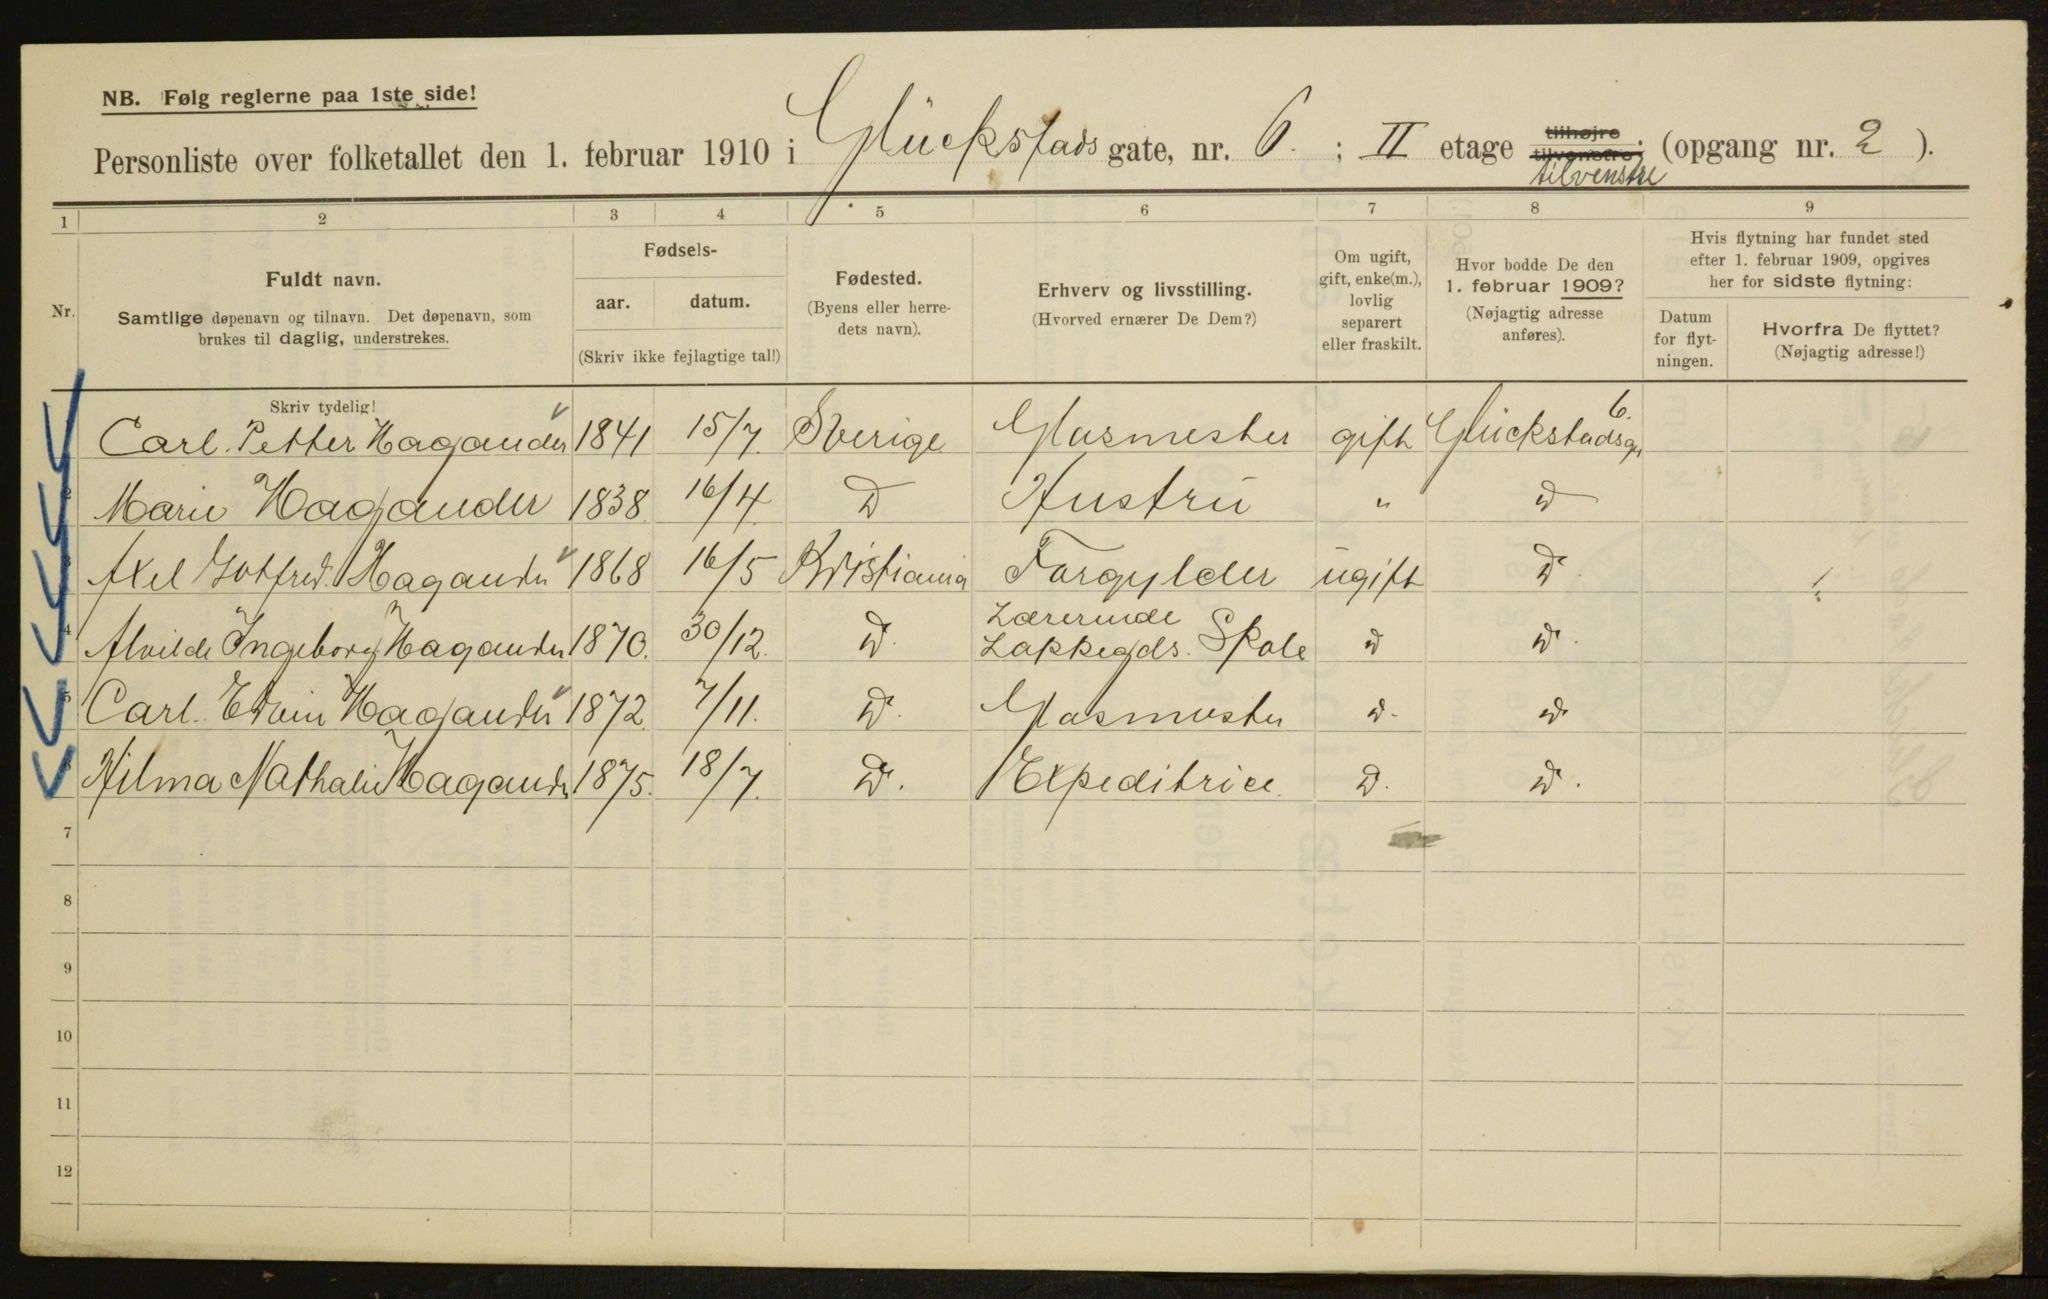 NB. Følg reglerne paa 1ste side!
Personliste over folketallet den 1. februar 1910 i Glückstads gate, nr. 6. ; II etage tilhøjre tilvenstre; (opgang nr. 2 ).
tilvenstre
1 2 3 4 5 6 7 8 9
Nr. Fuldt navn. Samtlige døpenavn og tilnavn. Det døpenavn, som brukes til daglig, understrekes.
Fødsels- aar. datum. (Skriv ikke fejlagtige tal!)
Fødested. (Byens eller herredets navn).
Erhverv og livsstilling. (Hvorved ernærer De Dem?)
Om ugift, gift, enke(m.), lovlig separert eller fraskilt.
Hvor bodde De den 1. februar 1909? (Nøjagtig adresse anføres).
Hvis flytning har fundet sted efter 1. februar 1909, opgives her for sidste flytning:
Datum for flytningen. Hvorfra De flyttet? (Nøjagtig adresse!)
Skriv tydelig!
Carl. Petter Hagander 1841 15/7. Sverige Glasmester gift Glückstadsg. 6.
2 Marie Hagander 1838. 16/4. D Hustru " D
3 Axel Gotfred. Hagander 1868 16/5 Kristiania Forgylder ugift D
4 Alvilde Ingeborg Hagander 1870. 30/12. D. Lærerinde Lakkegds. Skole D D.
5 Carl. Edvin Hagander 1872. 7/11. D. Glasmester D. D
6 Hilma Nathalie Hagander 1875. 18/7. D. Expeditrice. D. D.
7
8
9
10
11
12